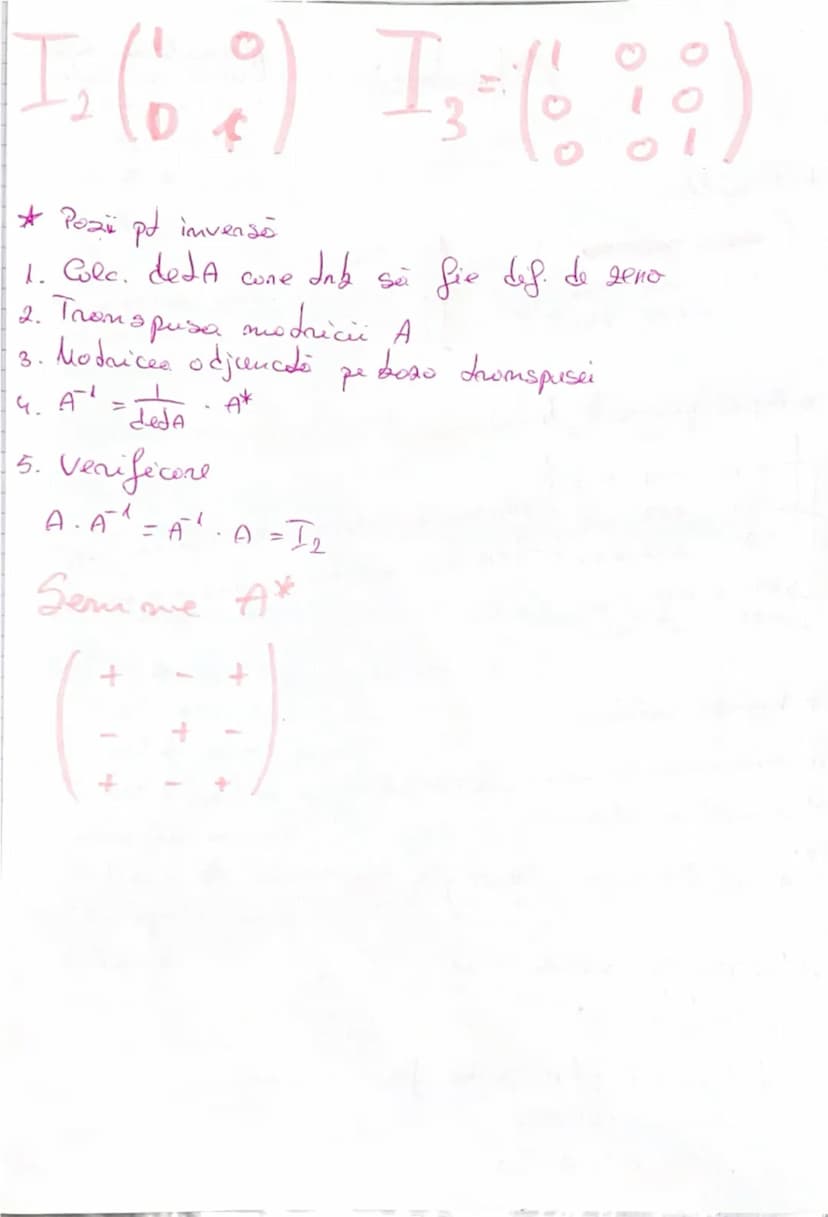 I₂ (1 0
0 1) I₃ = (1 0 0
0 1 0
0 0 1)
* Pozii pt inversă
1. Calc. detA care trb să fie dif. de zero
2. Transpusa matricii A
3. Matricea adjunctă pe baza transpusei
4. A⁻¹ = 1/detA · A*
5. Verificare
A · A⁻¹ = A⁻¹ · A = I₂
Semne A*
(+ - +
- + -
+ - +)